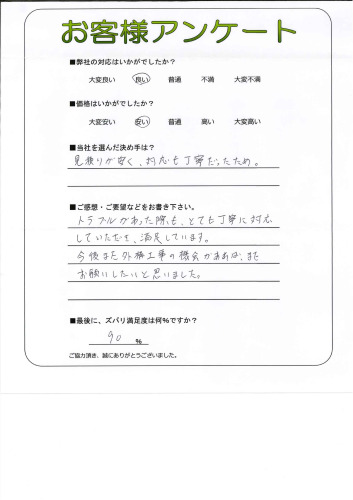 お客様アンケート
■弊社の対応はいかがでしたか？
大変良い 良い 普通 不満 大変不満
■価格はいかがですか？
大変安い 安い 普通 高い 大変高い
■当社を選んだ決め手は？
見積りが安く、対応も丁寧だったため。
■ご感想・ご要望などをお書き下さい。
トラブルがあった際も、とても丁寧に対応
していただき、満足しています。
今後また外構工事の機会があれば、また
お願いしたいと思いました。
■最後に、ズバリ満足度は何%ですか？
90 %
ご協力頂き、誠にありがとうございました。